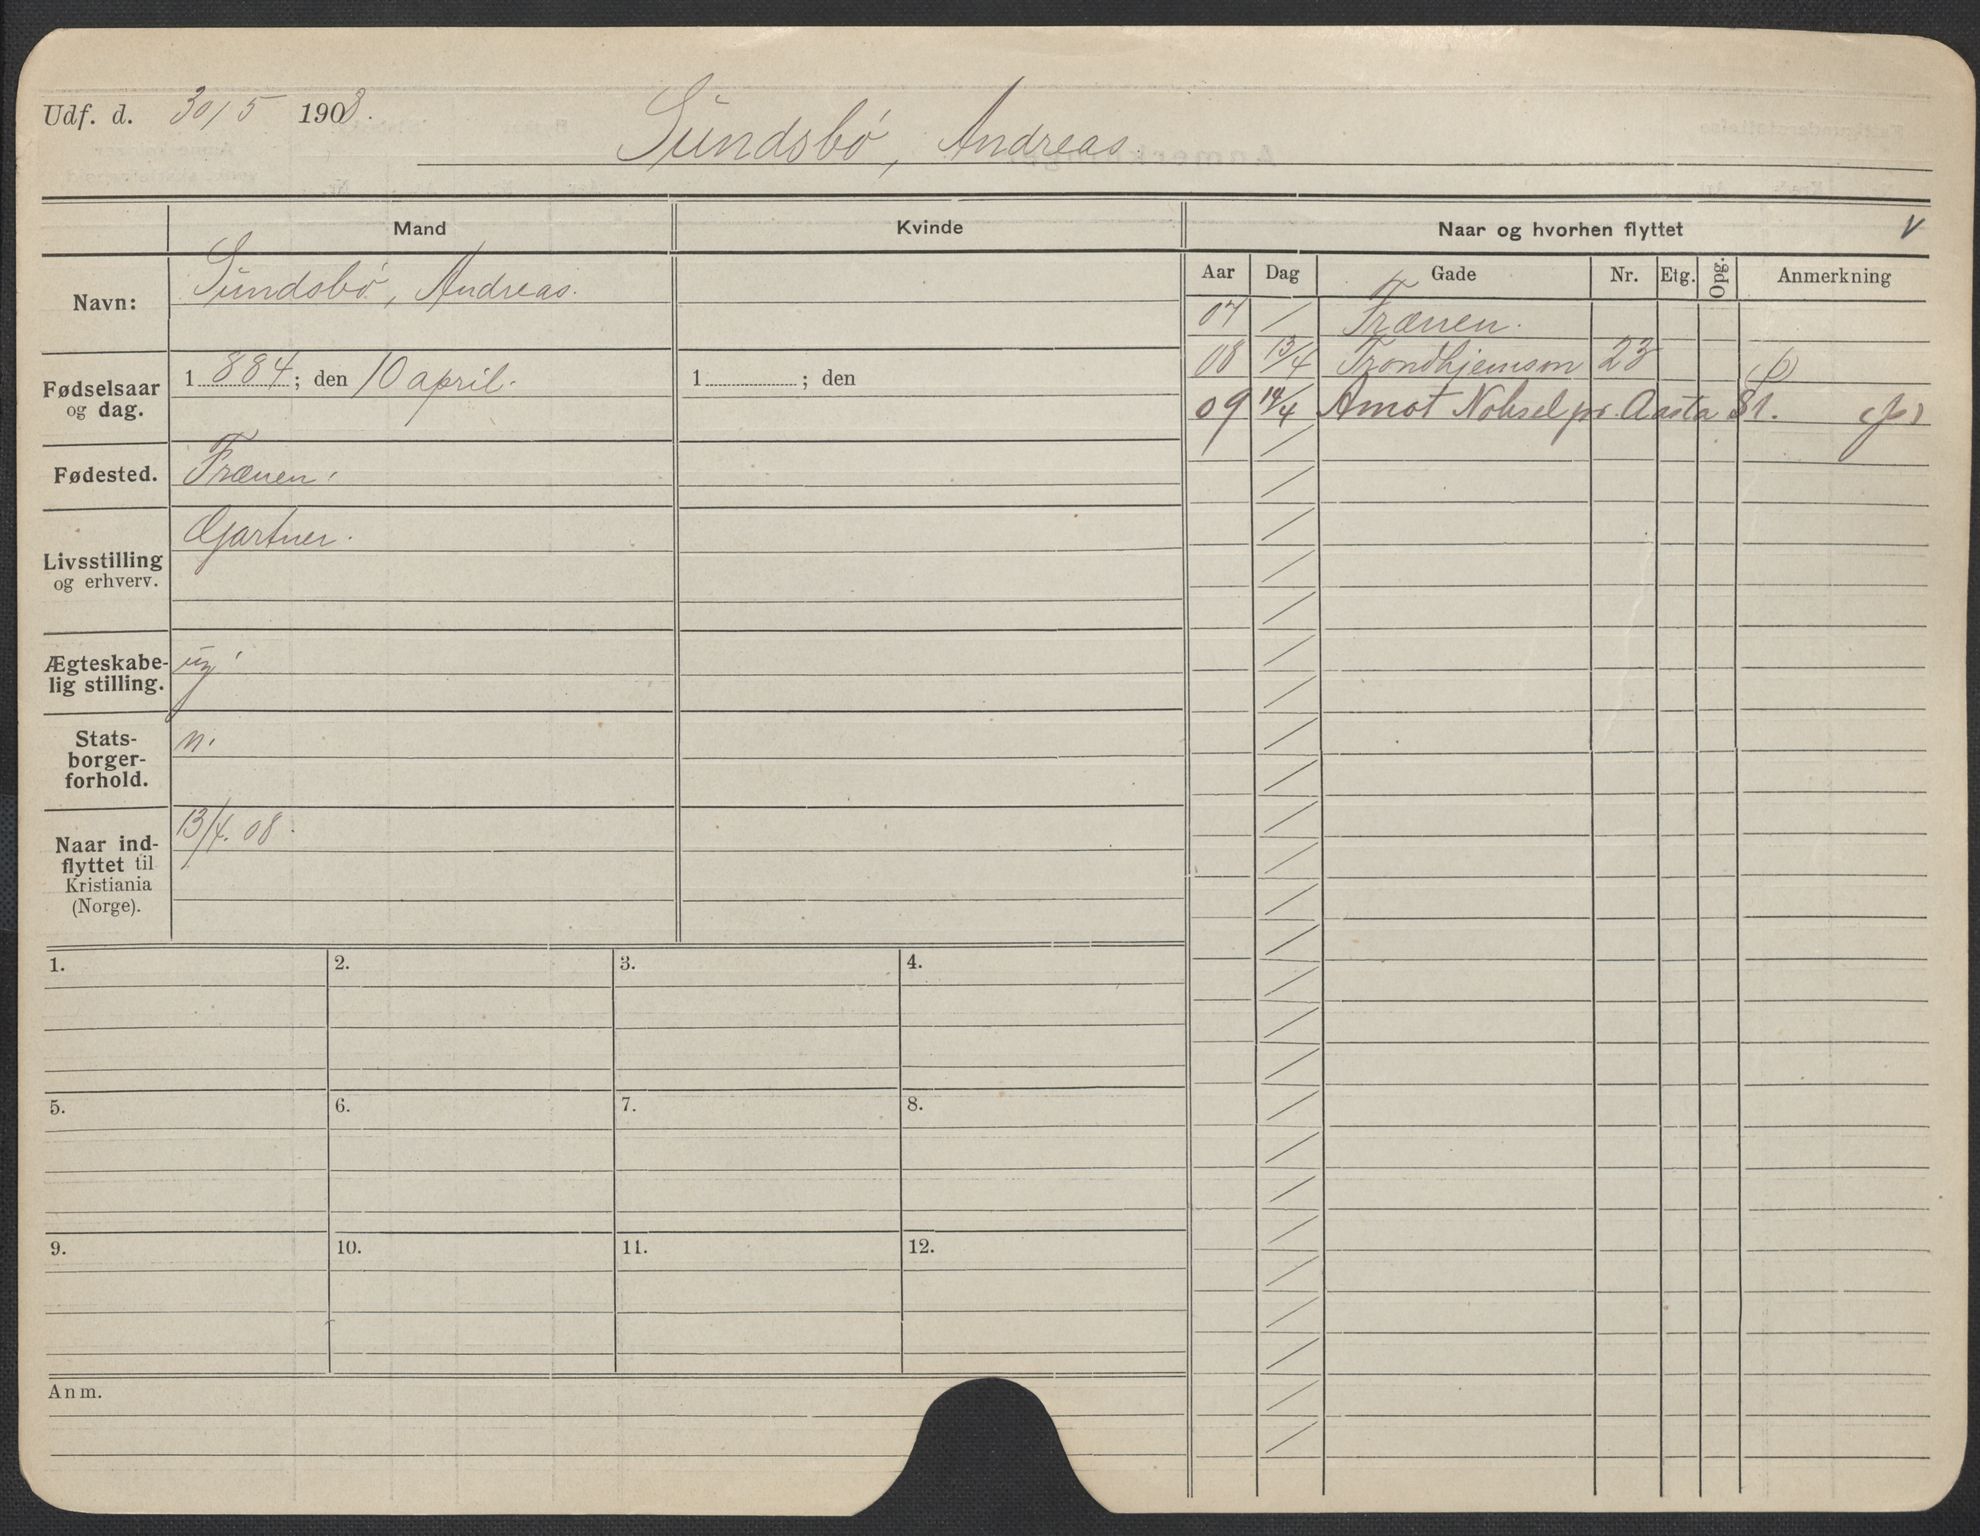 Udf. d. 30/5 1908.
Sundsbö, Andreas.
Mand Kvinde Naar og hvorhen flyttet V
Navn: Sundsbö, Andreas.
Aar Dag Gade Nr. Etg. Opg. Anmerkning
07 / Frænen.
08 13/4 Trondhjemsvn 23 (p)
09 14/4 Amot Nohsel pr. Aasta St.
Fødselsaar og dag. 1 884; den 10 april. 1 ; den
Fødested. Frænen.
Livsstilling og erhverv. Gartner.
Ægteskabe-
lig stilling. ug.
Stats-
borger-
forhold. n.
Naar ind-
flyttet til
Kristiania
(Norge). 13/4. 08.
1. 2. 3. 4.
5. 6. 7. 8.
9. 10. 11. 12.
Anm.